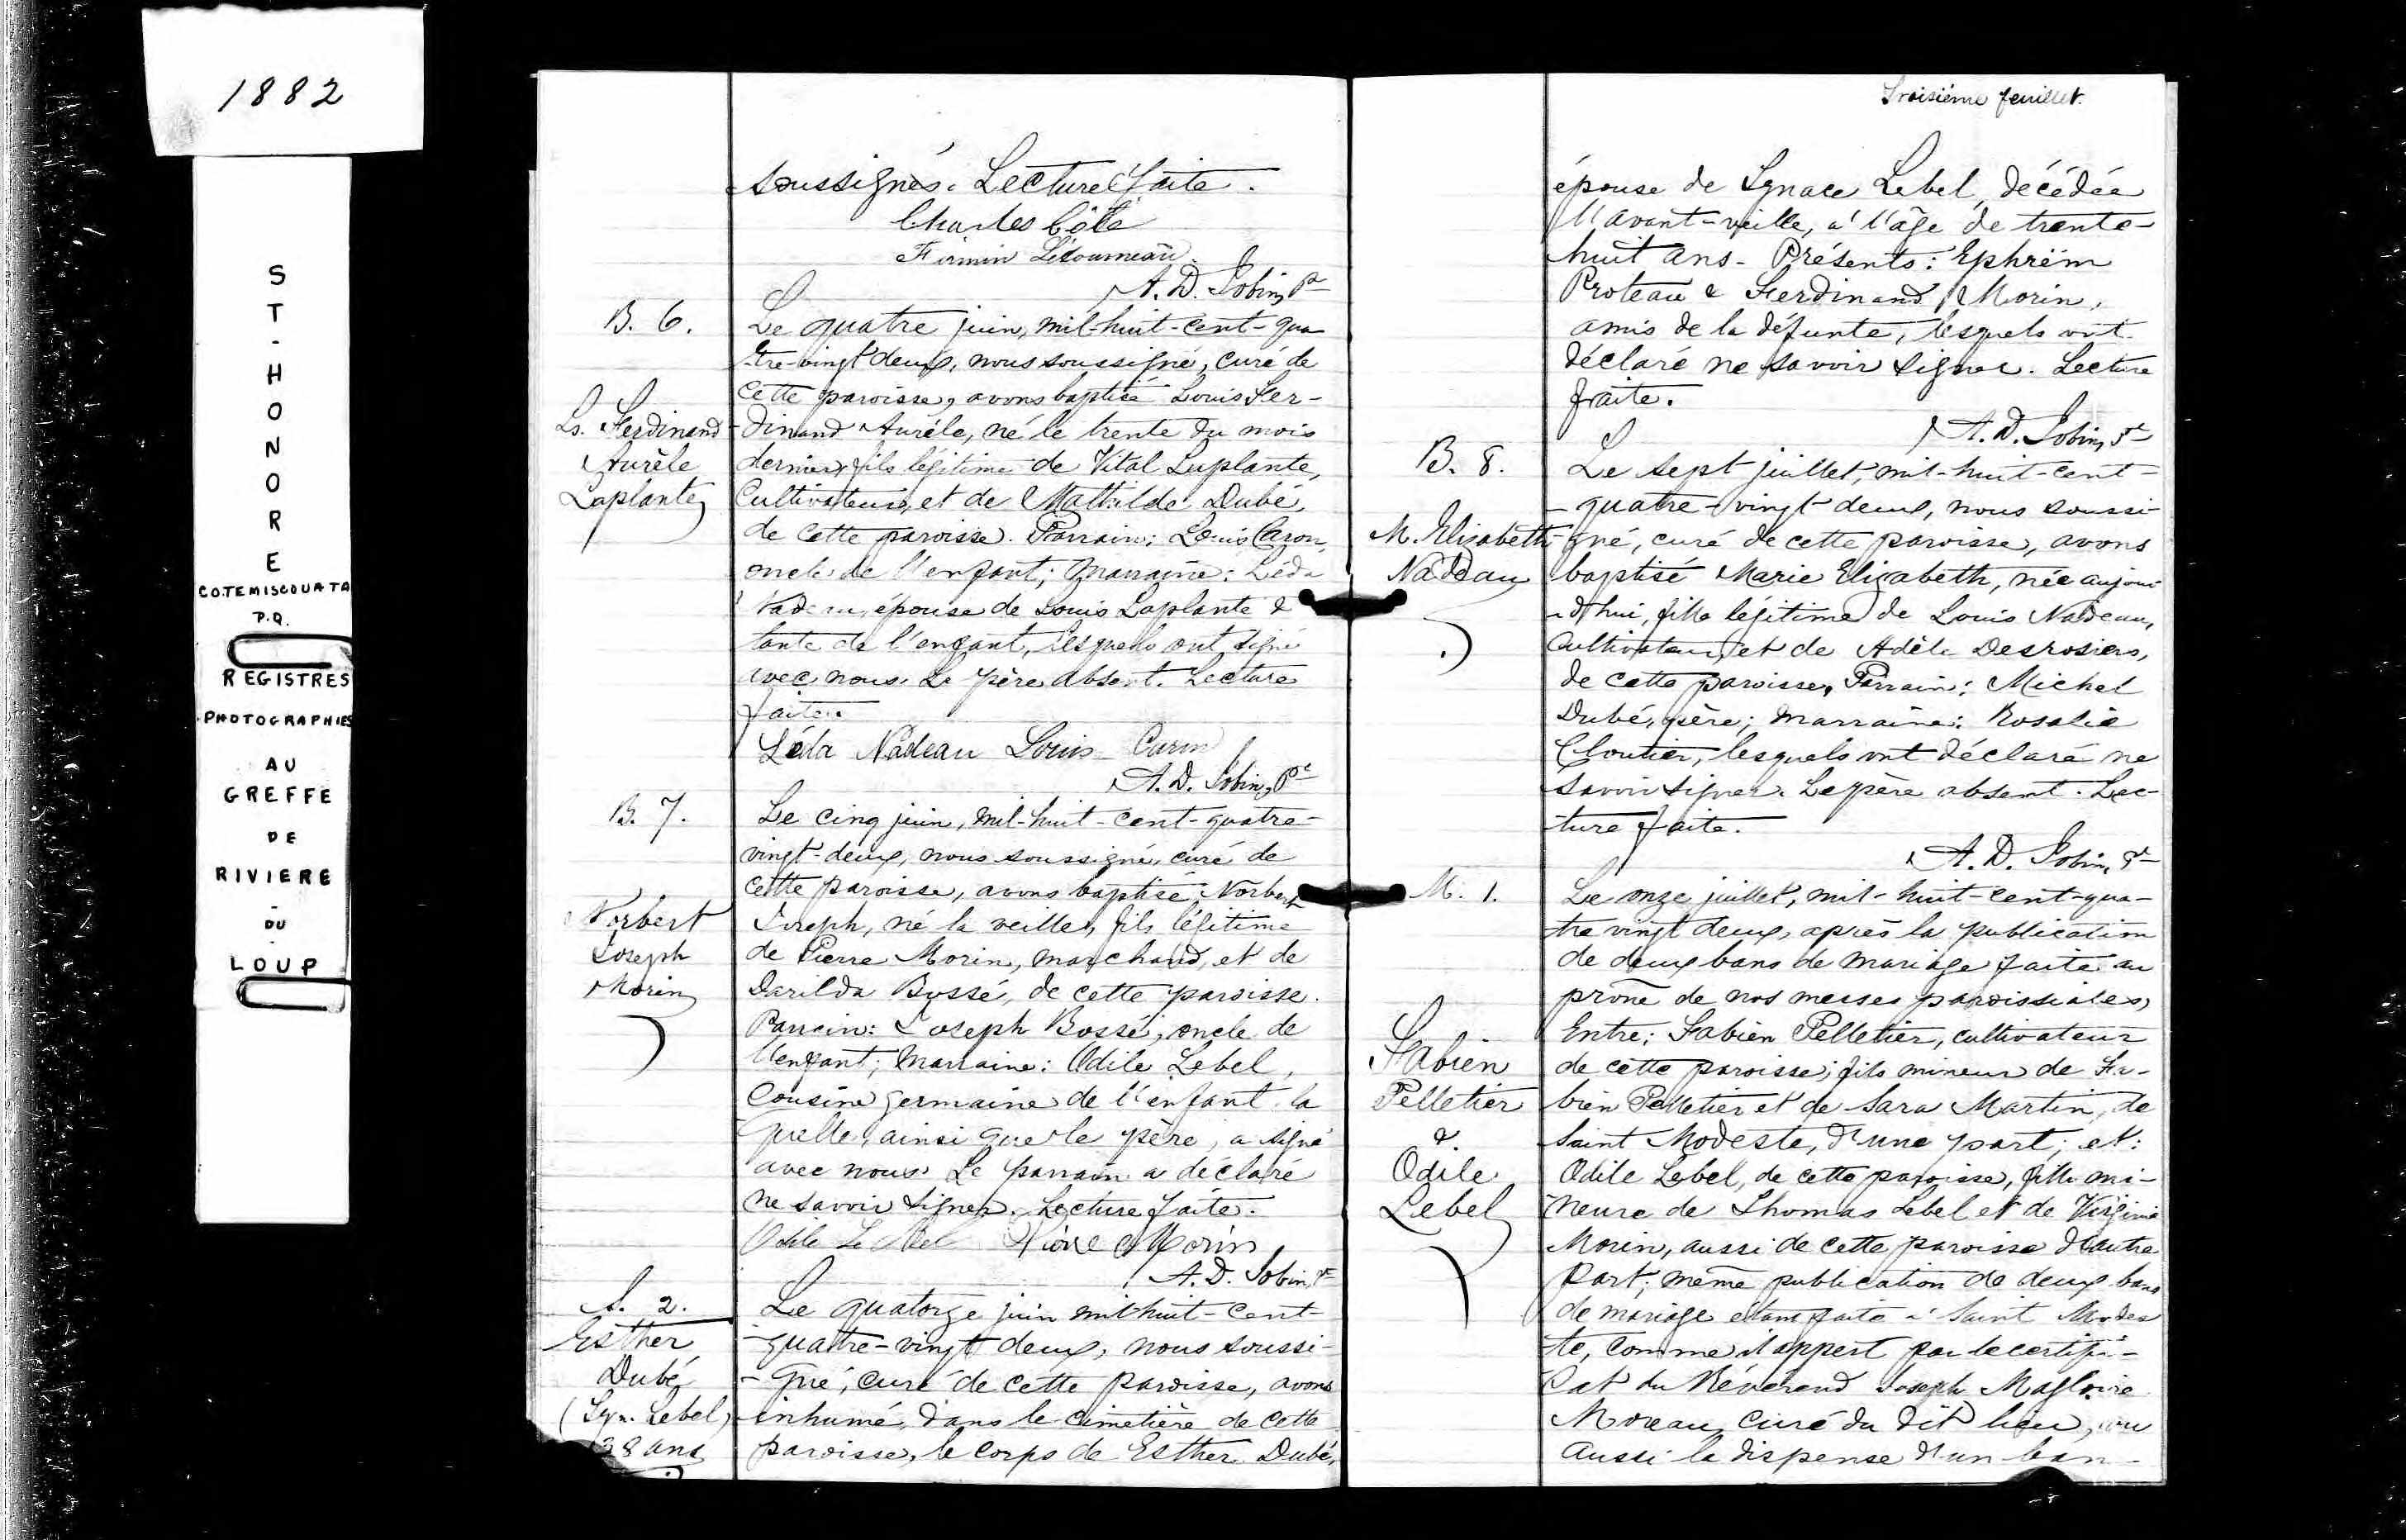 1882
S
T
-
H
O
N
O
R
E
CO.TEMISCOUATA
P.Q.
REGISTRES
PHOTOGRAPHIES
AU
GREFFE
DE
RIVIERE
-
DU
-
LOUP
soussignés. Lecture faite.
Charles Côté
Firmin Létourneau.
A. D. Jobin, Ptre
B. 6.
Ls. Ferdinand
Aurèle
Laplante
Le quatre juin, mil-huit-cent-qua
-tre-vingt deux, nous soussigné, curé de
cette paroisse, avons baptisé Louis Fer-
-dinand Aurèle, né le trente du mois
dernier, fils légitime de Vital Laplante,
Cultivateur, et de Mathilde Dubé,
de cette paroisse. Parrain: Louis Caron,
oncle de l'enfant; marraine: Léda
Nadeau, épouse de Louis Laplante &
tante de l'enfant, lesquels ont signé
avec nous. Le père absent. Lecture
faite.
Léda Nadeau Louis Caron
A. D. Jobin, Ptre
B. 7.
Norbert
Joseph
Morin
Le cinq juin, mil-huit-cent-quatre-
vingt-deux, nous soussigné, curé de
cette paroisse, avons baptisé Norbert
Joseph, né la veille, fils légitime
de Pierre Morin, marchand, et de
Darilda Bossé, de cette paroisse.
Parrain: Joseph Bossé, oncle de
l'enfant; marraine: Odile Lebel,
Cousine germaine de l'enfant la
quelle, ainsi que le père, a signé
avec nous. Le parrain a déclaré
ne savoir signer. Lecture faite.
Odile Le Bel Pierre Morin
A. D. Jobin, Ptre
S. 2.
Esther
Dubé
(Ign. Lebel)
38 ans
Le quatorze juin mil-huit-cent-
-quatre-vingt deux, nous soussi-
-gné, curé de cette paroisse, avons
inhumé, dans le cimetière de cette
paroisse, le corps de Esther Dubé,
Troisième feuillet.
épouse de Ignace Lebel, décédée
l'avant-veille, à l'âge de trente-
huit ans. Présents: Ephrëm
Proteau & Ferdinand Morin,
amis de la défunte, lesquels ont
déclaré ne savoir signer. Lecture
faite.
A. D. Jobin, Ptre
B. 8.
M. Elisabeth
Nadeau
Le sept juillet, mil-huit-cent-
-quatre-vingt deux, nous soussi-
-gné, curé de cette paroisse, avons
baptisé Marie Elizabeth, née aujour
-d'hui, fille légitime de Louis Nadeau,
Cultivateur, et de Adèle Desrosiers,
de cette paroisse, Parrain: Michel
Dubé, père; marraine: Rosalie
Cloutier, lesquels ont déclaré ne
savoir signer. Le père absent. Lec-
-ture faite.
A. D. Jobin, Ptre
M. 1.
Fabien
Pelletier
&
Odile
Lebel
Le onze juillet, mil-huit-cent-qua-
tre vingt deux, après la publication
de deux bans de mariage faite au
prône de nos messes paroissiales,
Entre; Fabien Pelletier, cultivateur
de cette paroisse, fils mineur de Fa-
bien Pelletier et de Sara Martin, de
Saint Modeste, d'une part; et:
Odile Lebel, de cette paroisse, fille mi-
neure de Thomas Lebel et de Virginie
Morin, aussi de cette paroisse d'autre
part; même publication de deux bans
de mariage étant faite à Saint Modes
te, comme il appert par le certifi-
cat du Révérend Joseph Magloire
Moreau, curé du dit lieu, vu
aussi la dispense d'un ban